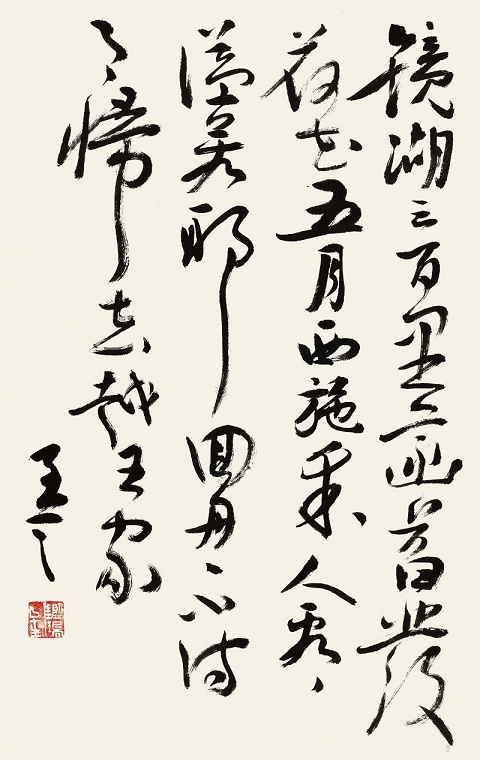 鏡湖三百里菡萏發
荷花五月西施采人看
隘若耶回舟不待
月歸去越王家